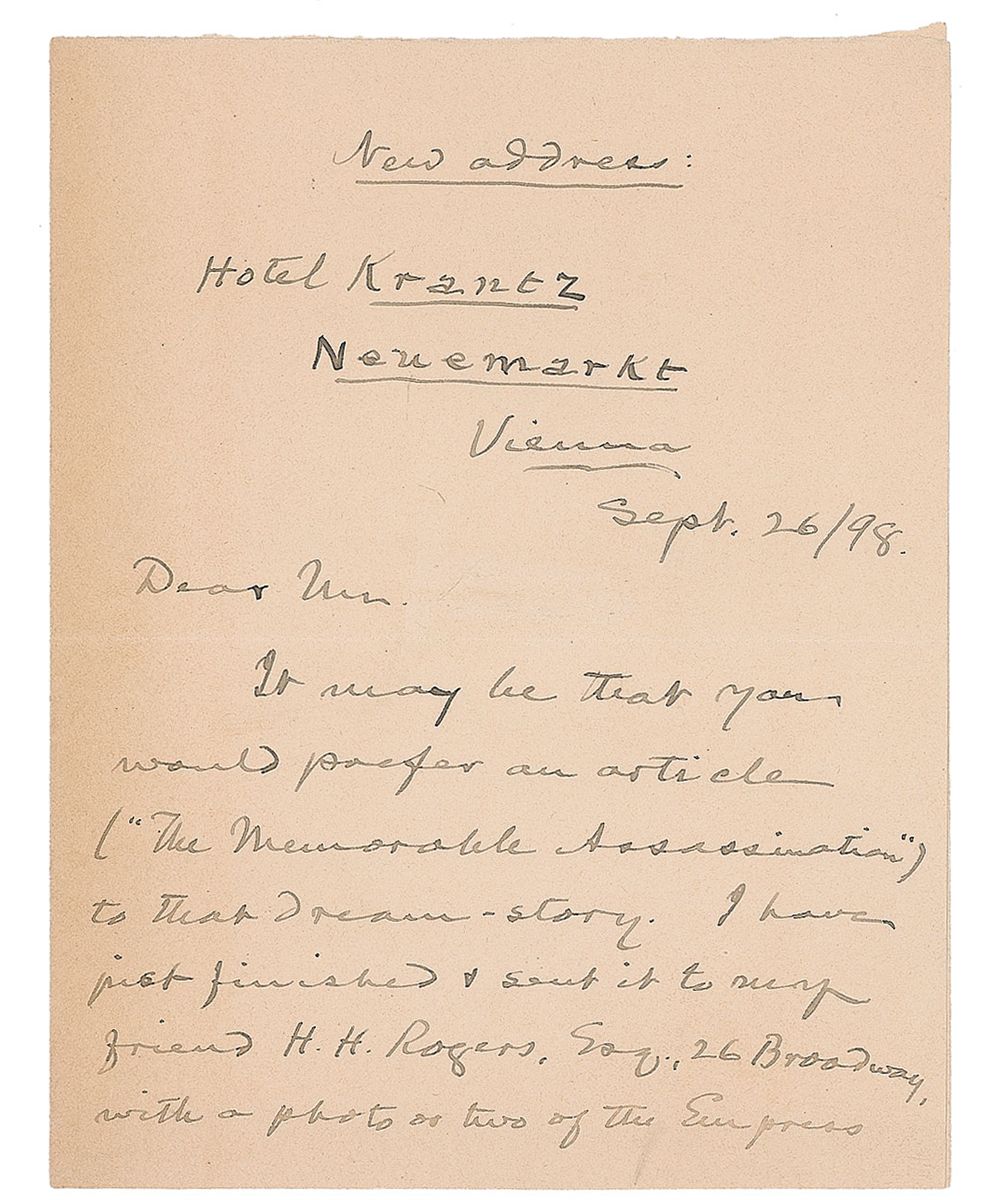 New address:
Hotel Krantz
Neuemarkt
Vienna
Sept. 26/98.
Dear Mr.
It may be that you
would prefer an article
("The Memorable Assassination")
to that dream-story. I have
just finished & sent it to my
friend H. H. Rogers, Esq., 26 Broadway,
with a photo or two of the Empress